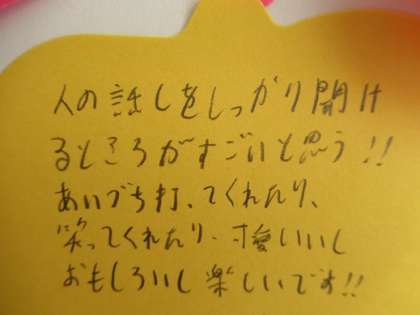 人の話しをしっかり開け
るところがすごいと思う!!
あいづち打ってくれたり、
笑ってくれたり、優しいし
おもしろいし楽しいです!!